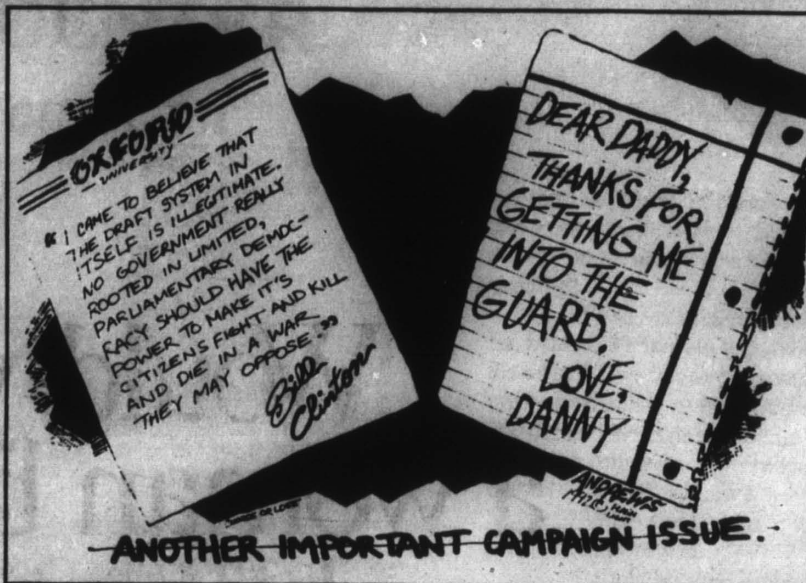 OXFORD
UNIVERSITY
“I CAME TO BELIEVE THAT
THE DRAFT SYSTEM IN
ITSELF IS ILLEGITIMATE.
NO GOVERNMENT REALLY
ROOTED IN LIMITED,
PARLIAMENTARY DEMOC-
RACY SHOULD HAVE THE
POWER TO MAKE IT'S
CITIZENS FIGHT AND KILL
AND DIE IN A WAR
THEY MAY OPPOSE.”
Bill
Clinton
DEAR DADDY,
THANKS FOR
GETTING ME
INTO THE
GUARD.
LOVE,
DANNY
ANDREWS
ANOTHER IMPORTANT CAMPAIGN ISSUE.